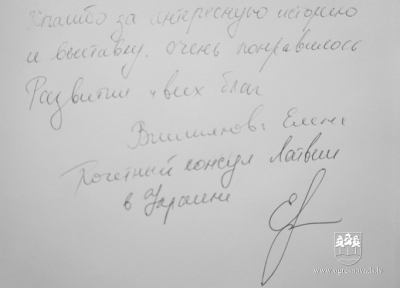 Спасибо за интересную историю
и выставку. Очень понравилось
Развития и всех благ
Елена
Почетный консул Латвии
в Украине